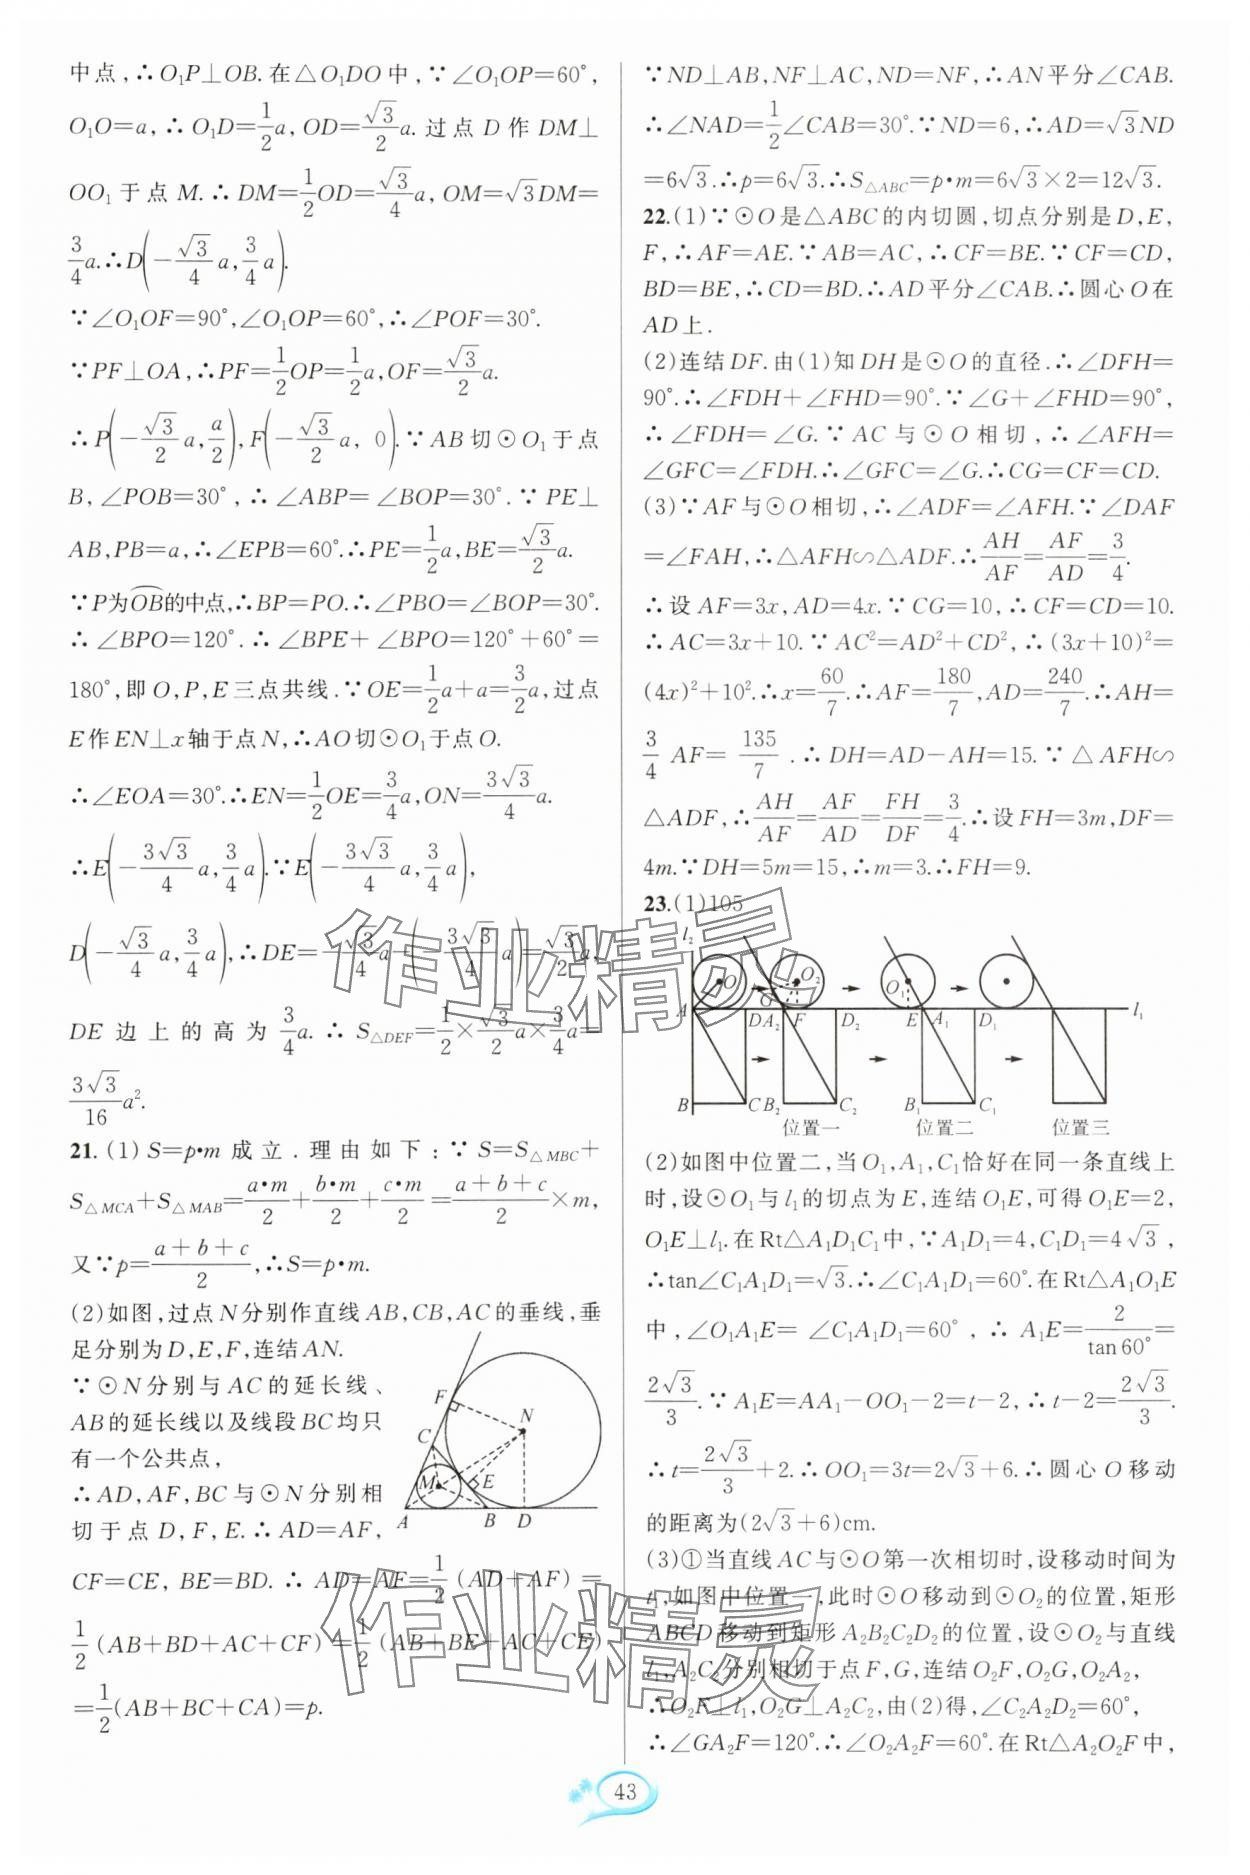 中点,∴O₁P⊥OB.在△O₁DO中,∵∠O₁OP=60°,
O₁O=a,∴O₁D=1/2a,OD=√3/2a.过点D作DM⊥
OO₁于点M.∴DM=1/2OD=√3/4a,OM=√3DM=
3/4a.∴D(-√3/4a,3/4a).
∵∠O₁OF=90°,∠O₁OP=60°,∴∠POF=30°.
∵PF⊥OA,∴PF=1/2OP=1/2a,OF=√3/2a.
∴P(-√3/2a,a/2),F(-√3/2a,0).∵AB切⊙O₁于点
B,∠POB=30°,∴∠ABP=∠BOP=30°.∵PE⊥
AB,PB=a,∴∠EPB=60°.∴PE=1/2a,BE=√3/2a.
∵P为OB的中点,∴BP=PO.∴∠PBO=∠BOP=30°.
∴∠BPO=120°.∴∠BPE+∠BPO=120°+60°=
180°,即O,P,E三点共线.∵OE=1/2a+a=3/2a,过点
E作EN⊥x轴于点N,∴AO切⊙O₁于点O.
∴∠EOA=30°.∴EN=1/2OE=3/4a,ON=3√3/4a.
∴E(-3√3/4a,3/4a).∵E(-3√3/4a,3/4a),
D(-√3/4a,3/4a),∴DE=-√3/4a-(-3√3/4a)=√3/2a,
DE边上的高为3/4a.∴S△DEF=1/2×√3/2a×3/4a=
3√3/16a².
21.(1)S=p•m成立.理由如下:∵S=S△MBC+
S△MCA+S△MAB=a•m/2+b•m/2+c•m/2=(a+b+c)/2×m,
又∵p=(a+b+c)/2,∴S=p•m.
(2)如图,过点N分别作直线AB,CB,AC的垂线,垂
足分别为D,E,F,连结AN.
∵⊙N分别与AC的延长线、
AB的延长线以及线段BC均只
有一个公共点,
∴AD,AF,BC与⊙N分别相
切于点D,F,E.∴AD=AF,
F
N
C
M
E
A B D
CF=CE,BE=BD.∴AD=AF=1/2(AD+AF)=
1/2(AB+BD+AC+CF)=1/2(AB+BE+AC+CE)
=1/2(AB+BC+CA)=p.
∵ND⊥AB,NF⊥AC,ND=NF,∴AN平分∠CAB.
∴∠NAD=1/2∠CAB=30°.∵ND=6,∴AD=√3ND
=6√3.∴p=6√3.∴S△ABC=p•m=6√3×2=12√3.
22.(1)∵⊙O是△ABC的内切圆,切点分别是D,E,
F,∴AF=AE.∵AB=AC,∴CF=BE.∵CF=CD,
BD=BE,∴CD=BD.∴AD平分∠CAB.∴圆心O在
AD上.
(2)连结DF.由(1)知DH是⊙O的直径.∴∠DFH=
90°.∴∠FDH+∠FHD=90°.∵∠G+∠FHD=90°,
∴∠FDH=∠G.∵AC与⊙O相切,∴∠AFH=
∠GFC=∠FDH.∴∠GFC=∠G.∴CG=CF=CD.
(3)∵AF与⊙O相切,∴∠ADF=∠AFH.∵∠DAF
=∠FAH,∴△AFH∽△ADF.∴AH/AF=AF/AD=3/4.
∴设AF=3x,AD=4x.∵CG=10,∴CF=CD=10.
∴AC=3x+10.∵AC²=AD²+CD²,∴(3x+10)²=
(4x)²+10².∴x=60/7.∴AF=180/7,AD=240/7.∴AH=
3/4AF=135/7.∴DH=AD-AH=15.∵△AFH∽
△ADF,∴AH/AF=AF/AD=FH/DF=3/4.∴设FH=3m,DF=
4m.∵DH=5m=15,∴m=3.∴FH=9.
23.(1)105
l₂
O O₂ O₁
G
A D A₂ F D₂ E A₁ D₁ l₁
B C B₂ C₂ B₁ C₁
位置一 位置二 位置三
(2)如图中位置二,当O₁,A₁,C₁恰好在同一条直线上
时,设⊙O₁与l₁的切点为E,连结O₁E,可得O₁E=2,
O₁E⊥l₁.在Rt△A₁D₁C₁中,∵A₁D₁=4,C₁D₁=4√3,
∴tan∠C₁A₁D₁=√3.∴∠C₁A₁D₁=60°.在Rt△A₁O₁E
中,∠O₁A₁E=∠C₁A₁D₁=60°,∴A₁E=2/tan60°=
2√3/3.∵A₁E=AA₁-OO₁-2=t-2,∴t-2=2√3/3.
∴t=2√3/3+2.∴OO₁=3t=2√3+6.∴圆心O移动
的距离为(2√3+6)cm.
(3)①当直线AC与⊙O第一次相切时,设移动时间为
t₁,如图中位置一,此时⊙O移动到⊙O₂的位置,矩形
ABCD移动到矩形A₂B₂C₂D₂的位置,设⊙O₂与直线
l₁,A₂C₂分别相切于点F,G,连结O₂F,O₂G,O₂A₂,
∴O₂F⊥l₁,O₂G⊥A₂C₂,由(2)得,∠C₂A₂D₂=60°,
∴∠GA₂F=120°.∴∠O₂A₂F=60°.在Rt△A₂O₂F中,
作业精灵
作业精灵
43